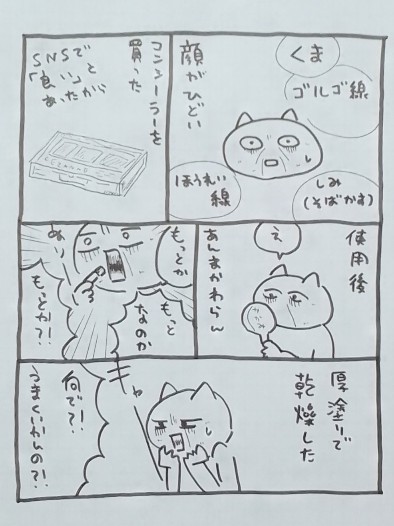 顔がひどい
くま
ゴルゴ線
ほうれい
線
しみ
(そばかす)
コンシーラーを
買った
SNSで
「良い」と
あったから
使用後
え
あんまかわらん
もっとか
もっと
なのか
ぬり
もっとか?!
厚塗りで
乾燥した
何で?!
うまくいかんの?!